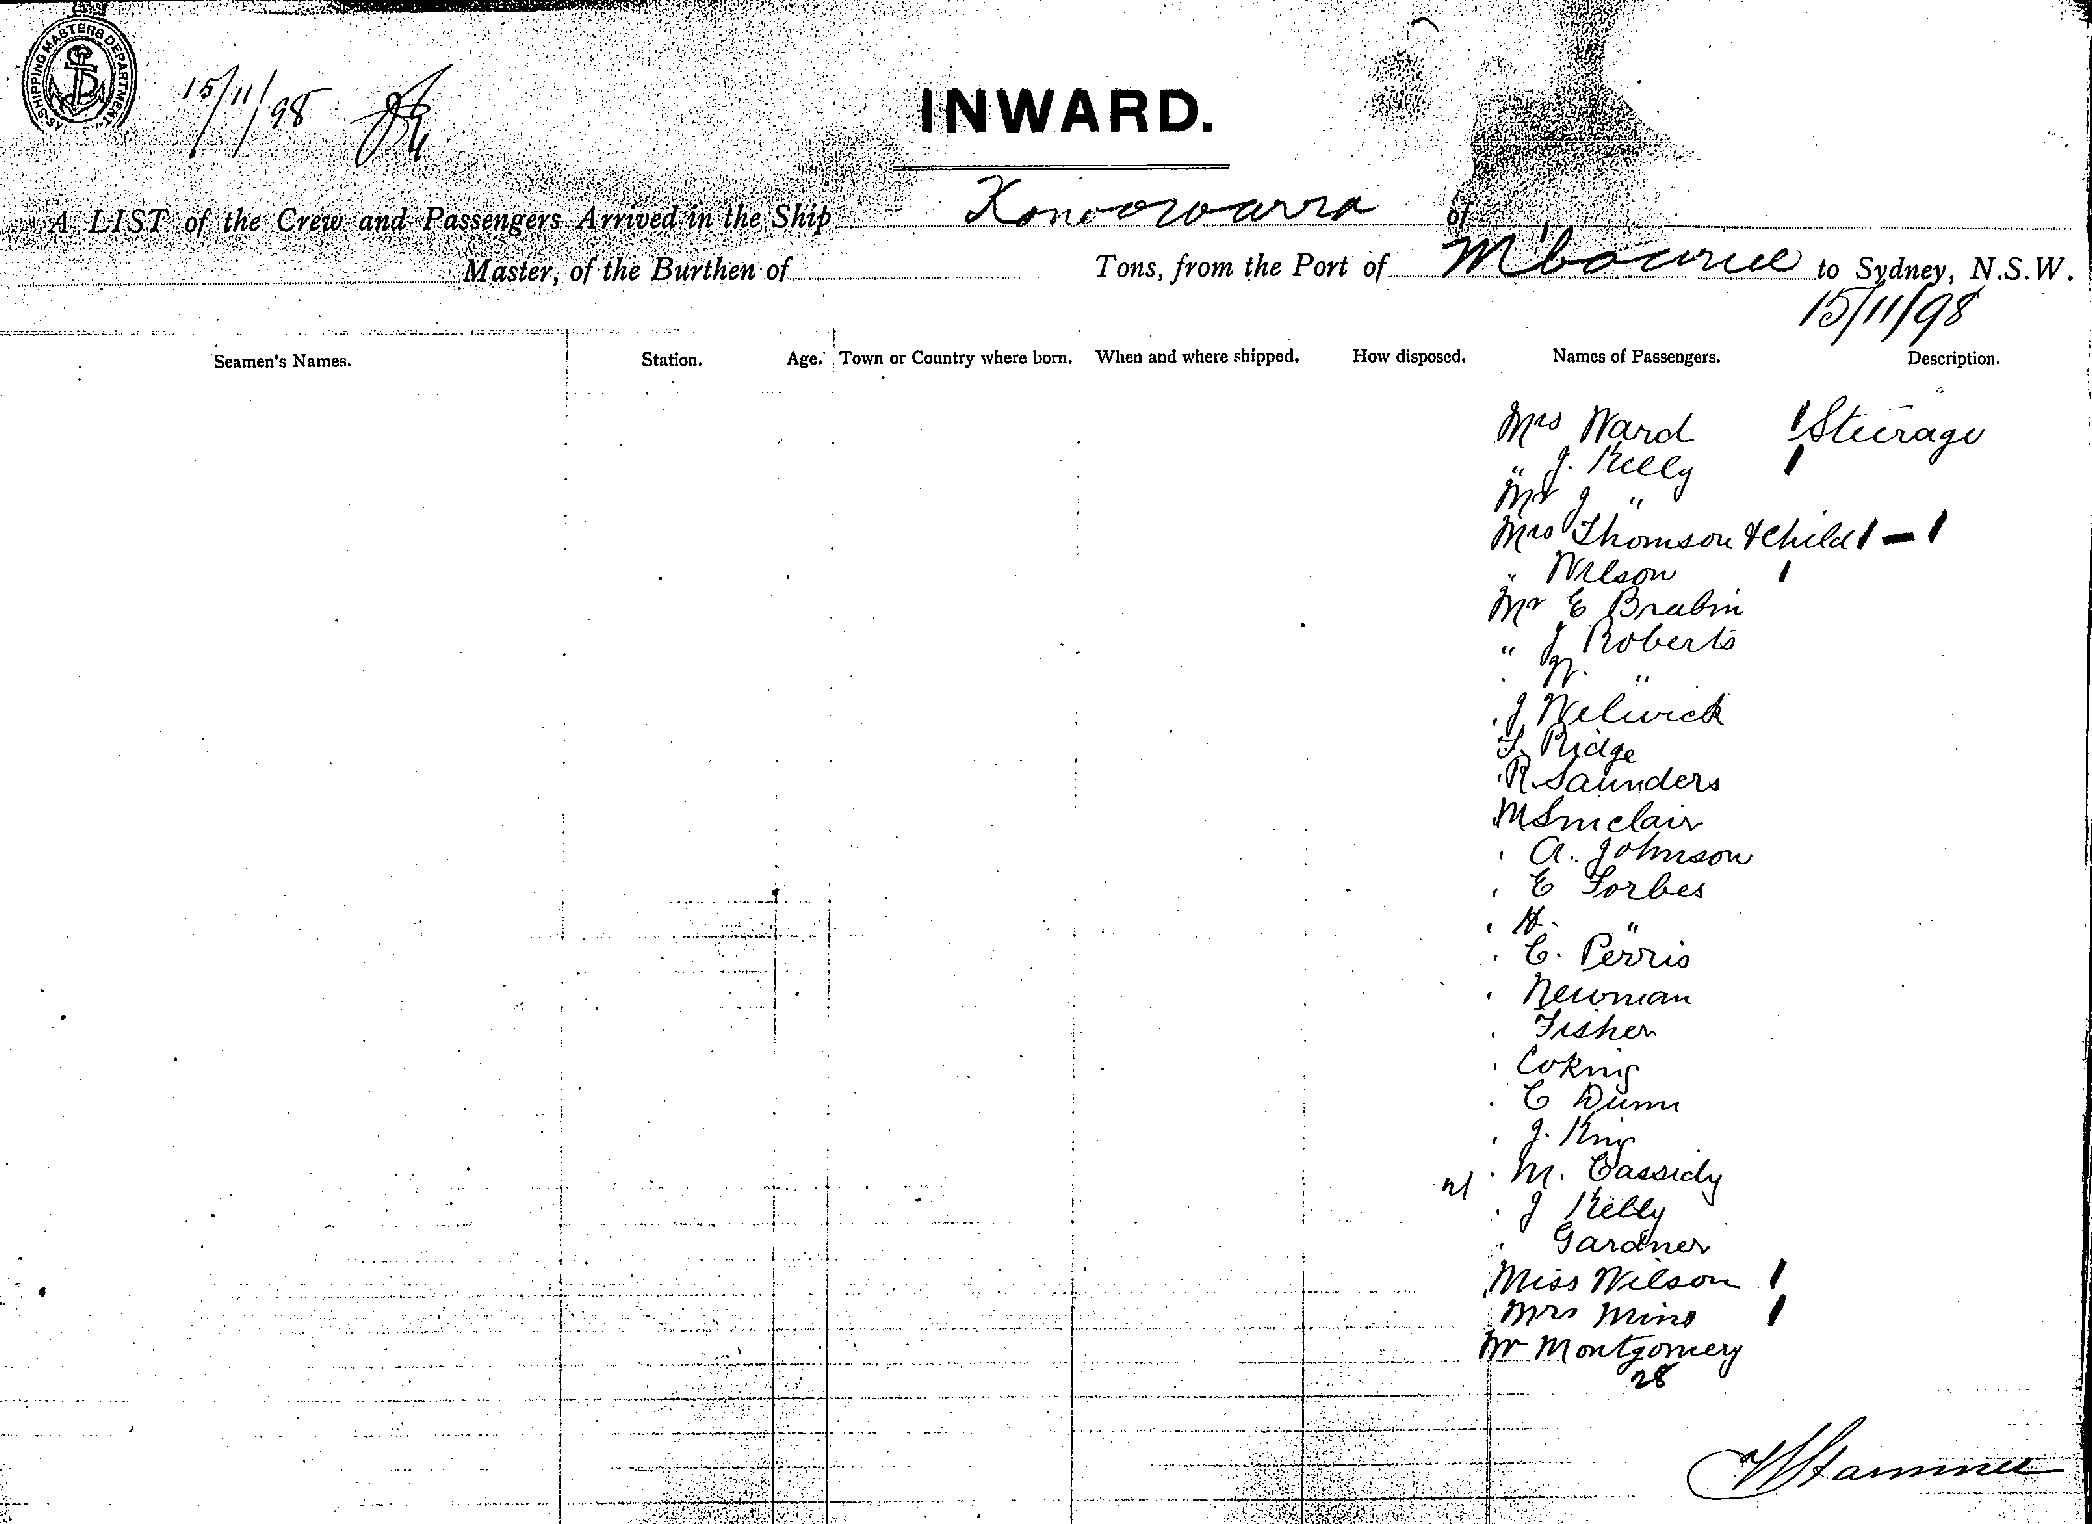 SHIPPING MASTERS DEPARTMENT
15/11/98
INWARD.
A LIST of the Crew and Passengers Arrived in the Ship Konoowarra of
Master, of the Burthen of Tons, from the Port of M'bourne to Sydney, N.S.W.
15/11/98
Seamen's Names. Station. Age. Town or Country where born. When and where shipped. How disposed. Names of Passengers. Description.
Mrs Ward 1 Steerage
" J. Kelly 1
Mr J "
Mrs Thomson & Child 1 - 1
" Wilson 1
Mr E Brabin
" J Roberts
W. "
J Welwick
Ridge
R. Saunders
M Sinclair
A. Johnson
E Forbes
H. "
C. Perris
Newman
Fisher
Coking
C Dunn
J. King
M. Cassidy
J Kelly
Gardner
Miss Wilson 1
Mrs Mins 1
Mr Montgomery
28